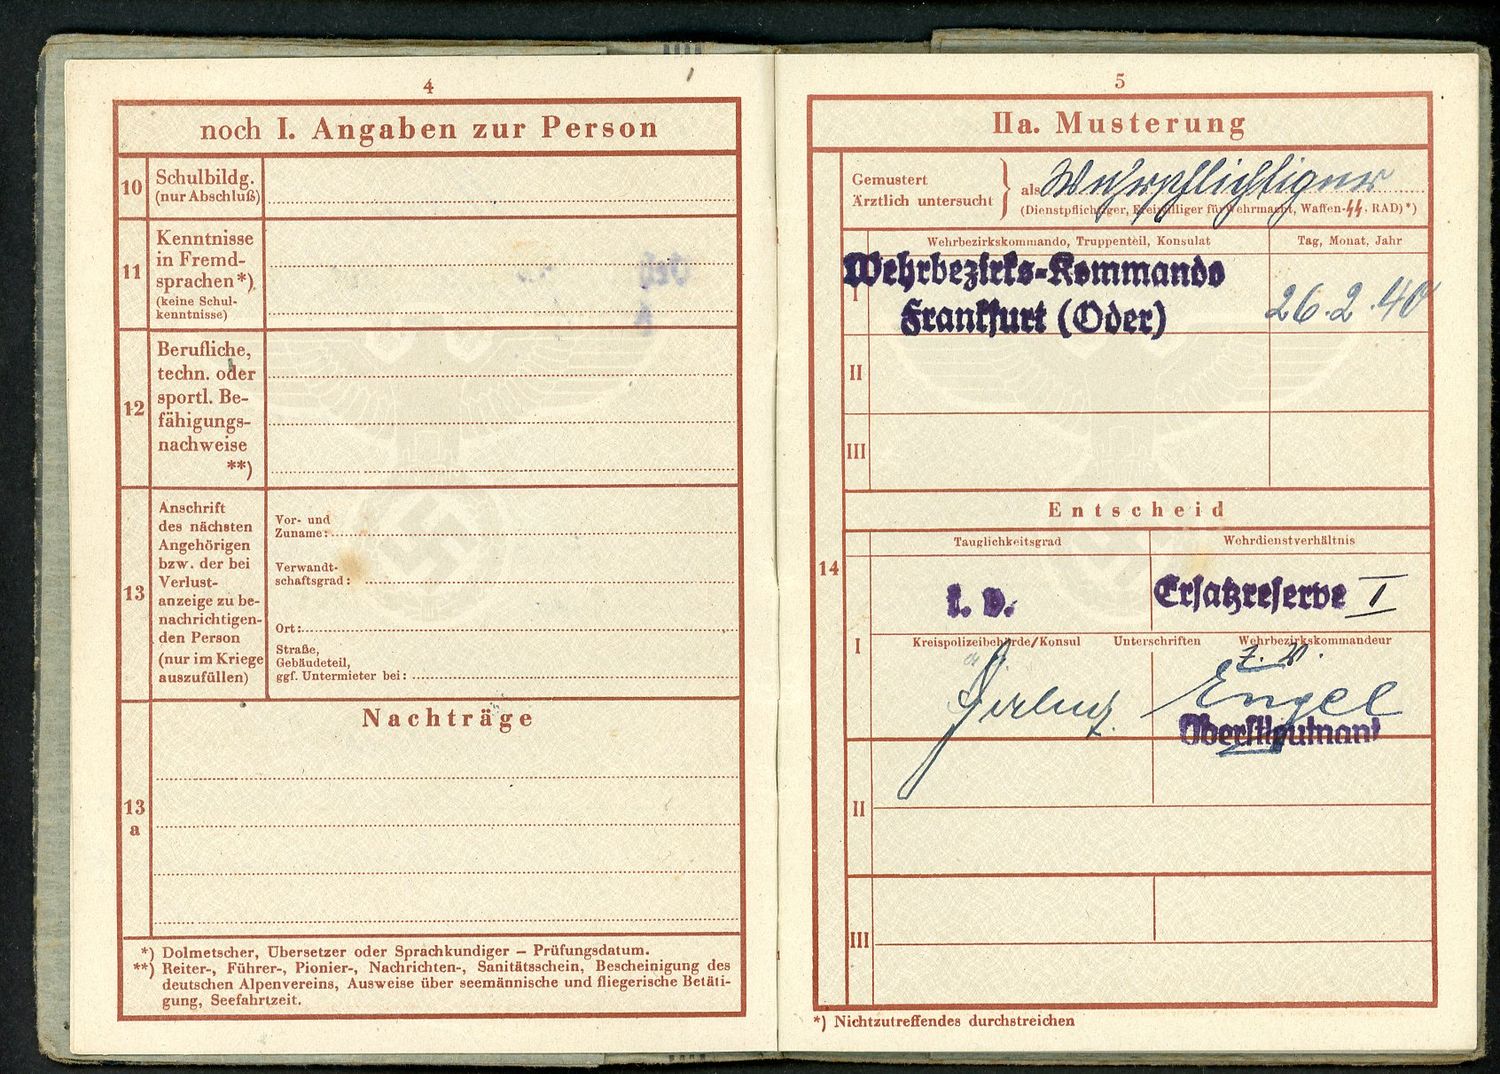 4
noch I. Angaben zur Person
10
Schulbildg.
(nur Abschluß)
11
Kenntnisse
in Fremd-
sprachen*)
(keine Schul-
kenntnisse)
12
Berufliche,
techn. oder
sportl. Be-
fähigungs-
nachweise
**)
13
Anschrift
des nächsten
Angehörigen
bzw. der bei
Verlust-
anzeige zu be-
nachrichtigen-
den Person
(nur im Kriege
auszufüllen)
Vor- und
Zuname:
Verwandt-
schaftsgrad:
Ort:
Straße,
Gebäudeteil,
ggf. Untermieter bei:
13
a
Nachträge
*) Dolmetscher, Übersetzer oder Sprachkundiger – Prüfungsdatum.
**) Reiter-, Führer-, Pionier-, Nachrichten-, Sanitätsschein, Bescheinigung des
deutschen Alpenvereins, Ausweise über seemännische und fliegerische Betäti-
gung, Seefahrtzeit.
5
IIa. Musterung
14
Gemustert
Ärztlich untersucht
als Wehrpflichtiger
(Dienstpflichtiger, Freiwilliger für Wehrmacht, Waffen-SS, RAD)*)
Wehrbezirkskommando, Truppenteil, Konsulat Tag, Monat, Jahr
I
Wehrbezirks-Kommando
Frankfurt (Oder)
26.2.40
II
III
Entscheid
Tauglichkeitsgrad Wehrdienstverhältnis
I
k. v. Ersatzreserve I
Kreispolizeibehörde/Konsul Unterschriften Wehrbezirkskommandeur
Engel
Oberstleutnant
II
III
*) Nichtzutreffendes durchstreichen